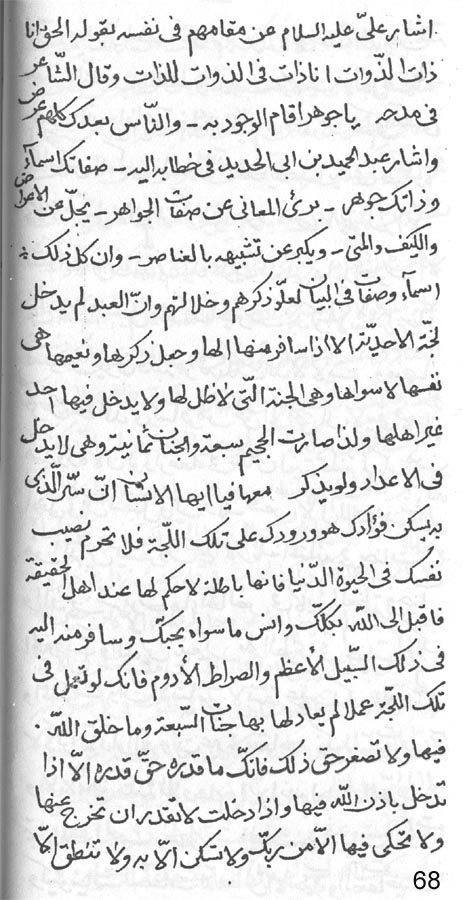 اشار علیّ علیه السلام عن مقامهم فی نفسه بقوله الحق انا
ذات الذّوات انا ذات فی الذوات للذات وقال الشّاعر
فی مدحه یا جوهرا قام الوجود به - والنّاس بعدک کلهم عرض
واشار عبد الحمید بن ابی الحدید فی خطابه الیه - صفاتک اسمآء
وذاتک جوهر - برئ المعانی عن صفات الجواهر - یجلّ عن الاعراض
والکیف والمتی - ویکبر عن تشبیهه بالعناصر - وان کل ذلک
اسمآء وصفات فی البیان لعلو ذکرهم وجلالتهم وانّ العبد لم یدخل
لجّة الاحدیّة الا اذا سافر منها الها وجعل ذکرها ونعیمها هی
نفسها لا سواها وهی الجنة التی لا ظل لها ولا یدخل فیها احد
غیر اهلها ولذا صارت الجحیم سبعة والجنان ثمانیة وهی لا یدخل
فی الاعداد ولو یذکر معها فیا ایها الانسان انّ سرّ الّذی
به یسکن فؤادک هو ورودک علی تلک اللّجة فلا تحرم نصیب
نفسک فی الحیوة الدّنیا فانها باطلة لا حکم لها عند اهل الحقیقة
فاقبل الی الله بکلّک وانس ما سواه بحبک وسافر منه الیه
فی ذلک السّبیل الأعظم والصراط الأدوم فانک لو تعمل فی
تلک اللّجة عملا لم یعادلها بها جنات السّبعة وما خلق اللّه
فیها ولا تصغر حق ذلک فانّک ما قدره حقّ قدره الّا اذا
تدخل باذن اللّه فیها واذا دخلت لا تقدر ان تخرج عنها
ولا تحکی فیها الّا من ربّک ولا تسکن الّا به ولا تنطق الّا
68